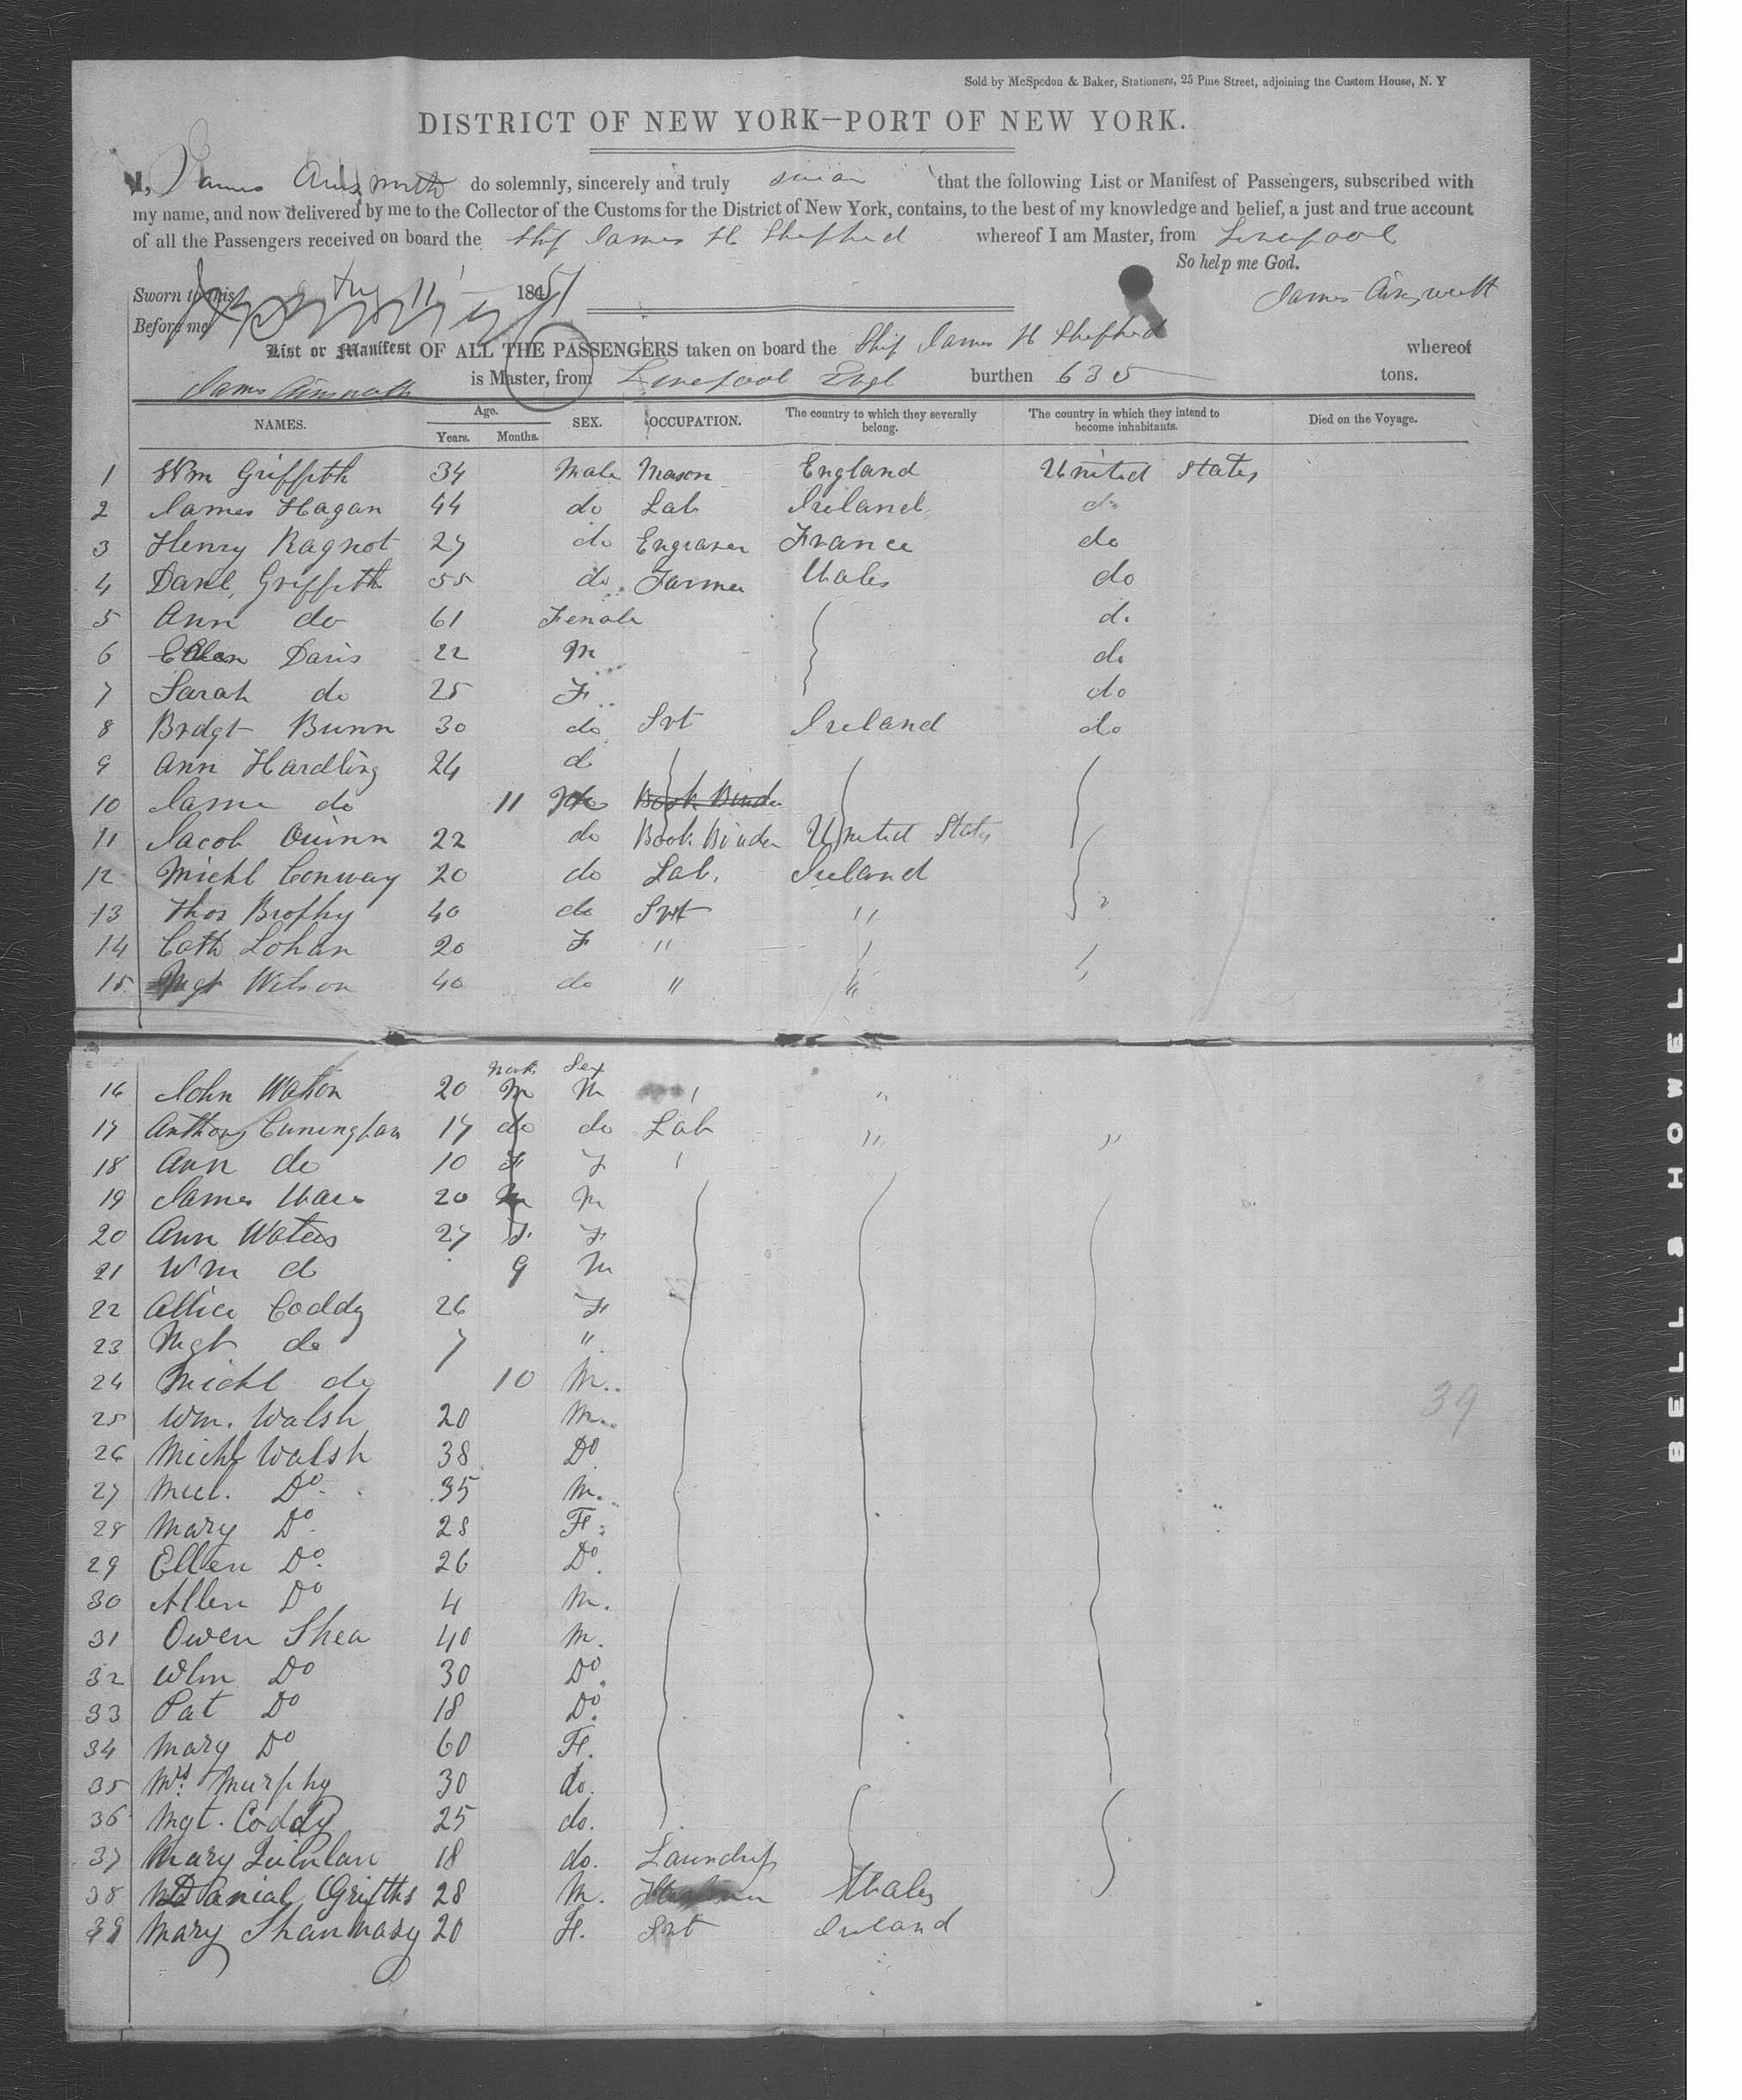 Sold by McSpedon & Baker, Stationers, 25 Pine Street, adjoining the Custom House, N. Y
DISTRICT OF NEW YORK—PORT OF NEW YORK.
I, James Ainsworth do solemnly, sincerely and truly swear that the following List or Manifest of Passengers, subscribed with
my name, and now delivered by me to the Collector of the Customs for the District of New York, contains, to the best of my knowledge and belief, a just and true account
of all the Passengers received on board the Ship James H Shepherd whereof I am Master, from Liverpool
So help me God.
Sworn to this Aug 11 1851 James Ainsworth
Before me
List or Manifest OF ALL THE PASSENGERS taken on board the Ship James H Shepherd whereof
James Ainsworth is Master, from Liverpool Engl burthen 635 tons.
NAMES. Age. Years. Months. SEX. OCCUPATION. The country to which they severally belong. The country in which they intend to become inhabitants. Died on the Voyage.
1 Wm Griffith 34 Male Mason England United States
2 James Hagan 44 do Lab Ireland do
3 Henry Ragnot 27 do Engraver France do
4 Danl, Griffith 55 do Farmer Wales do
5 Ann do 61 Female do
6 Davis 22 M do
7 Sarah do 25 F do
8 Brdgt Bunn 30 do Svt Ireland do
9 Ann Hardling 24 do
10 do 11 Book Binder
11 Jacob Quinn 22 do Book Binder United States
12 Michl Conway 20 do Lab. Ireland
13 Thos Brophy 40 do Svt "
14 Cath Lohan 20 F "
15 Mgt Wilson 40 do " "
Month Sex
16 John Waton 20 M M "
17 Anthony Cuningham 17 do do Lab " "
18 Ann do 10 F F
19 James 20 M M
20 Ann Waters 27 F F
21 Wm do 9 M
22 Allice Coddy 26 F
23 Mgt do 7 "
24 Michl do 10 M
25 Wm. Walsh 20 M
26 Michl Walsh 38 Do
27 Do 35 M.
28 Mary Do 28 F.
29 Ellen Do 26 Do
30 Allen Do 4 M.
31 Owen Shea 40 M.
32 Wlm Do 30 Do
33 Pat Do 18 Do
34 Mary Do 60 F.
35 Mrs Murphy 30 do.
36 Mgt. Coddy 25 do.
37 Mary Quinlan 18 do. Laundress
38 Danial Grifths 28 M. Wales
39 Mary Shannasy 20 F. Svt Ireland
39
BELL & HOWELL